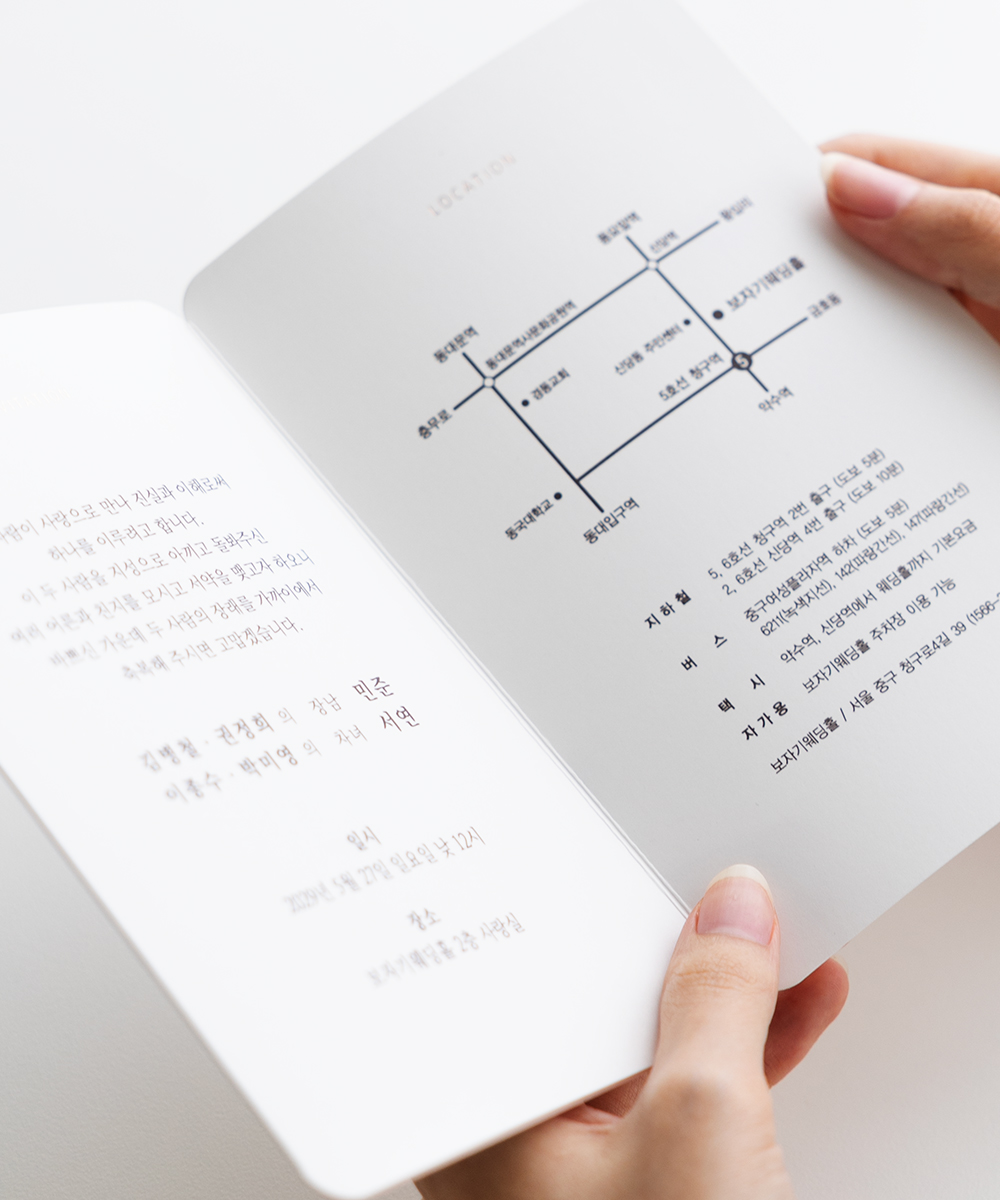 사랑으로 만나 진실과 이해로써
하나를 이루려고 합니다.
이 두 사람을 지성으로 아끼고 돌봐주신
여러 어른과 친지를 모시고 서약을 맺고자 하오니
바쁘신 가운데 두 사람의 장래를 가까이에서
축복해 주시면 고맙겠습니다.
김병철 · 권정희 의 장남 민준
이종수 · 박미영 의 차녀 서연
일시
2029년 5월 27일 일요일 낮 12시
장소
보자기웨딩홀 2층 사랑실
LOCATION
동묘앞역
신당역
왕십리
보자기웨딩홀
동대문역
동대문역사문화공원역
신당동 주민센터
금호동
충무로
경동교회
5호선 청구역
5
약수역
동국대학교
동대입구역
지하철 5, 6호선 청구역 2번 출구 (도보 5분)
2, 6호선 신당역 4번 출구 (도보 10분)
버스 중구여성플라자역 하차 (도보 5분)
6211(녹색지선), 142(파랑간선), 147(파랑간선)
택시 약수역, 신당역에서 웨딩홀까지 기본요금
자가용 보자기웨딩홀 주차장 이용 가능
보자기웨딩홀 / 서울 중구 청구로4길 39 (1566-